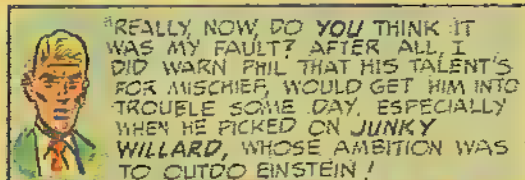 "REALLY, NOW, DO YOU THINK IT
WAS MY FAULT? AFTER ALL, I
DID WARN PHIL THAT HIS TALENT'S
FOR MISCHIEF, WOULD GET HIM INTO
TROUBLE SOME DAY, ESPECIALLY
WHEN HE PICKED ON JUNKY
WILLARD, WHOSE AMBITION WAS
TO OUTDO EINSTEIN!